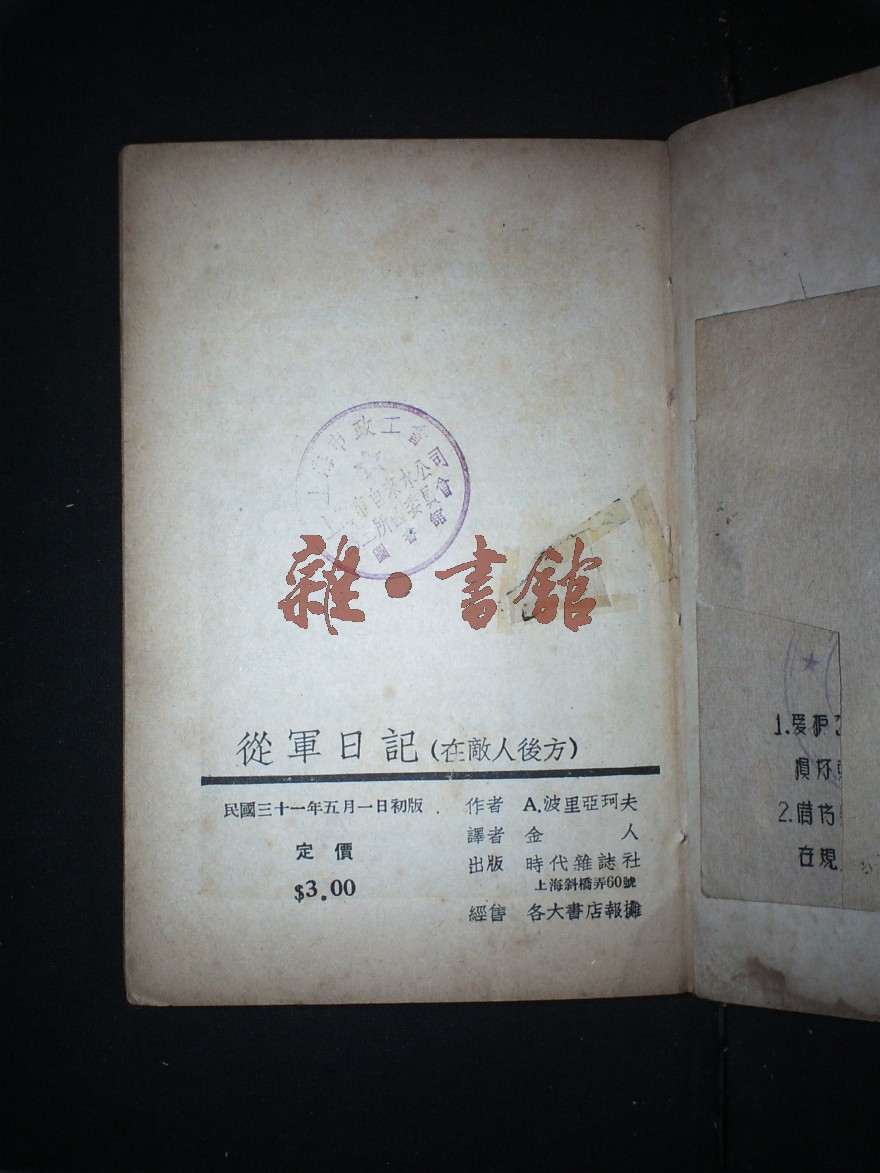 上海市政工會
自來水公司
委員會
圖書館
雜·書館
從軍日記(在敵人後方)
民國三十一年五月一日初版
定價
$3.00
作者 A.波里亞珂夫
譯者 金人
出版 時代雜誌社
上海斜橋弄60號
經售 各大書店報攤
1.爱护
損坏
2.借
在規